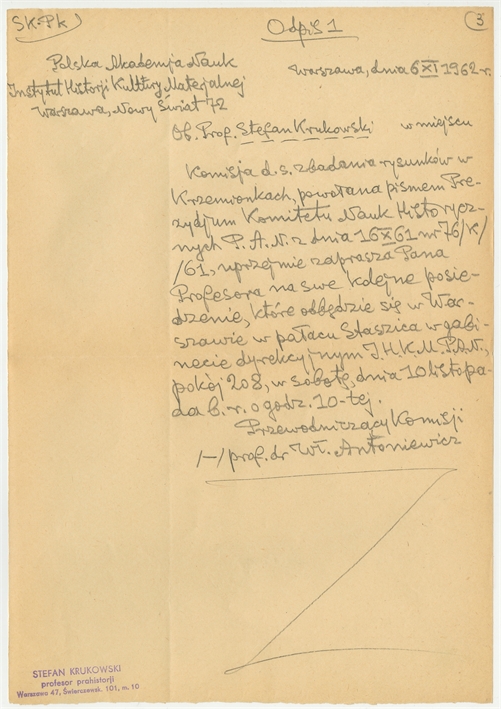 SK-Pk
Odpis 1
3
Polska Akademja Nauk
Instytut Historji Kultury Materjalnej
Warszawa, Nowy Świat 72
Warszawa, dnia 6 XI 1962 r.
Ob. Prof. Stefan Krukowski w miejscu
Komisja d. s. zbadania rysunków w
Krzemionkach, powołana pismem Pre-
zydjum Komitetu Nauk Historycz-
nych P. A. N. z dnia 16 X 61 nr 76/K/
/61, uprzejmie zaprasza Pana
Profesora na swe kolejne posie-
dzenie, które odbędzie się w War-
szawie w pałacu Staszica w gabi-
necie dyrekcyjnym I.H.K.M.P.A.N.,
pokój 208, w sobotę, dnia 10 listopa-
da b. r. o godz. 10-tej.
Przewodniczący Komisji
/—/ prof. dr Wł. Antoniewicz
STEFAN KRUKOWSKI
profesor prohistorji
Warszawa 47, Świerczewsk. 101, m. 10